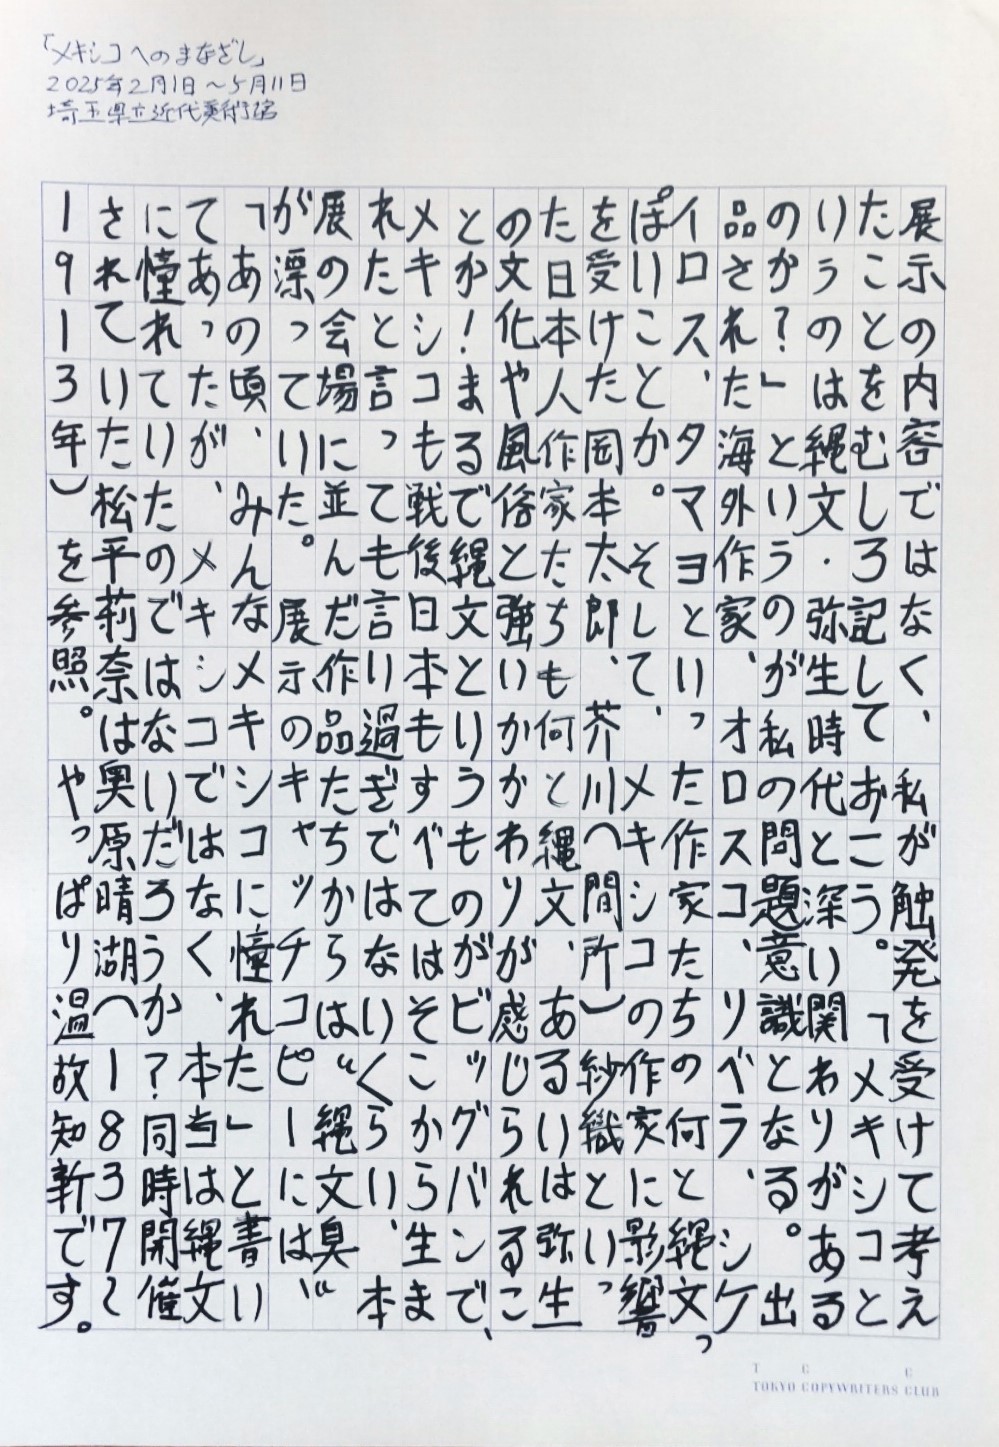 「メキシコへのまなざし」
2025年2月1日〜5月11日
埼玉県立近代美術館
展示の内容ではなく、私が触発を受けて考え
たことをむしろ記しておこう。「メキシコと
いうのは縄文・弥生時代と深い関わりがある
のか?」というのが私の問題意識となる。出
品された海外作家、オロスコ、リベラ、シケ
イロス、タマヨといった作家たちの何と縄文っ
ぽいことか。そして、メキシコの作家に影響
を受けた岡本太郎、芥川(間所)紗織といっ
た日本人作家たちも何と縄文、あるいは弥生
の文化や風俗と強いかかわりが感じられるこ
とか!まるで縄文というものがビッグバンで、
メキシコも戦後日本もすべてはそこから生ま
れたと言っても言い過ぎではないくらい、本
展の会場に並んだ作品たちからは“縄文臭”
が漂っていた。展示のキャッチコピーには、
「あの頃、みんなメキシコに憧れた」と書い
てあったが、メキシコではなく、本当は縄文
に憧れていたのではないだろうか?同時開催
されていた松平莉奈は奥原晴湖(1837〜
1913年)を参照。やっぱり温故知新です。
T C C
TOKYO COPYWRITERS CLUB